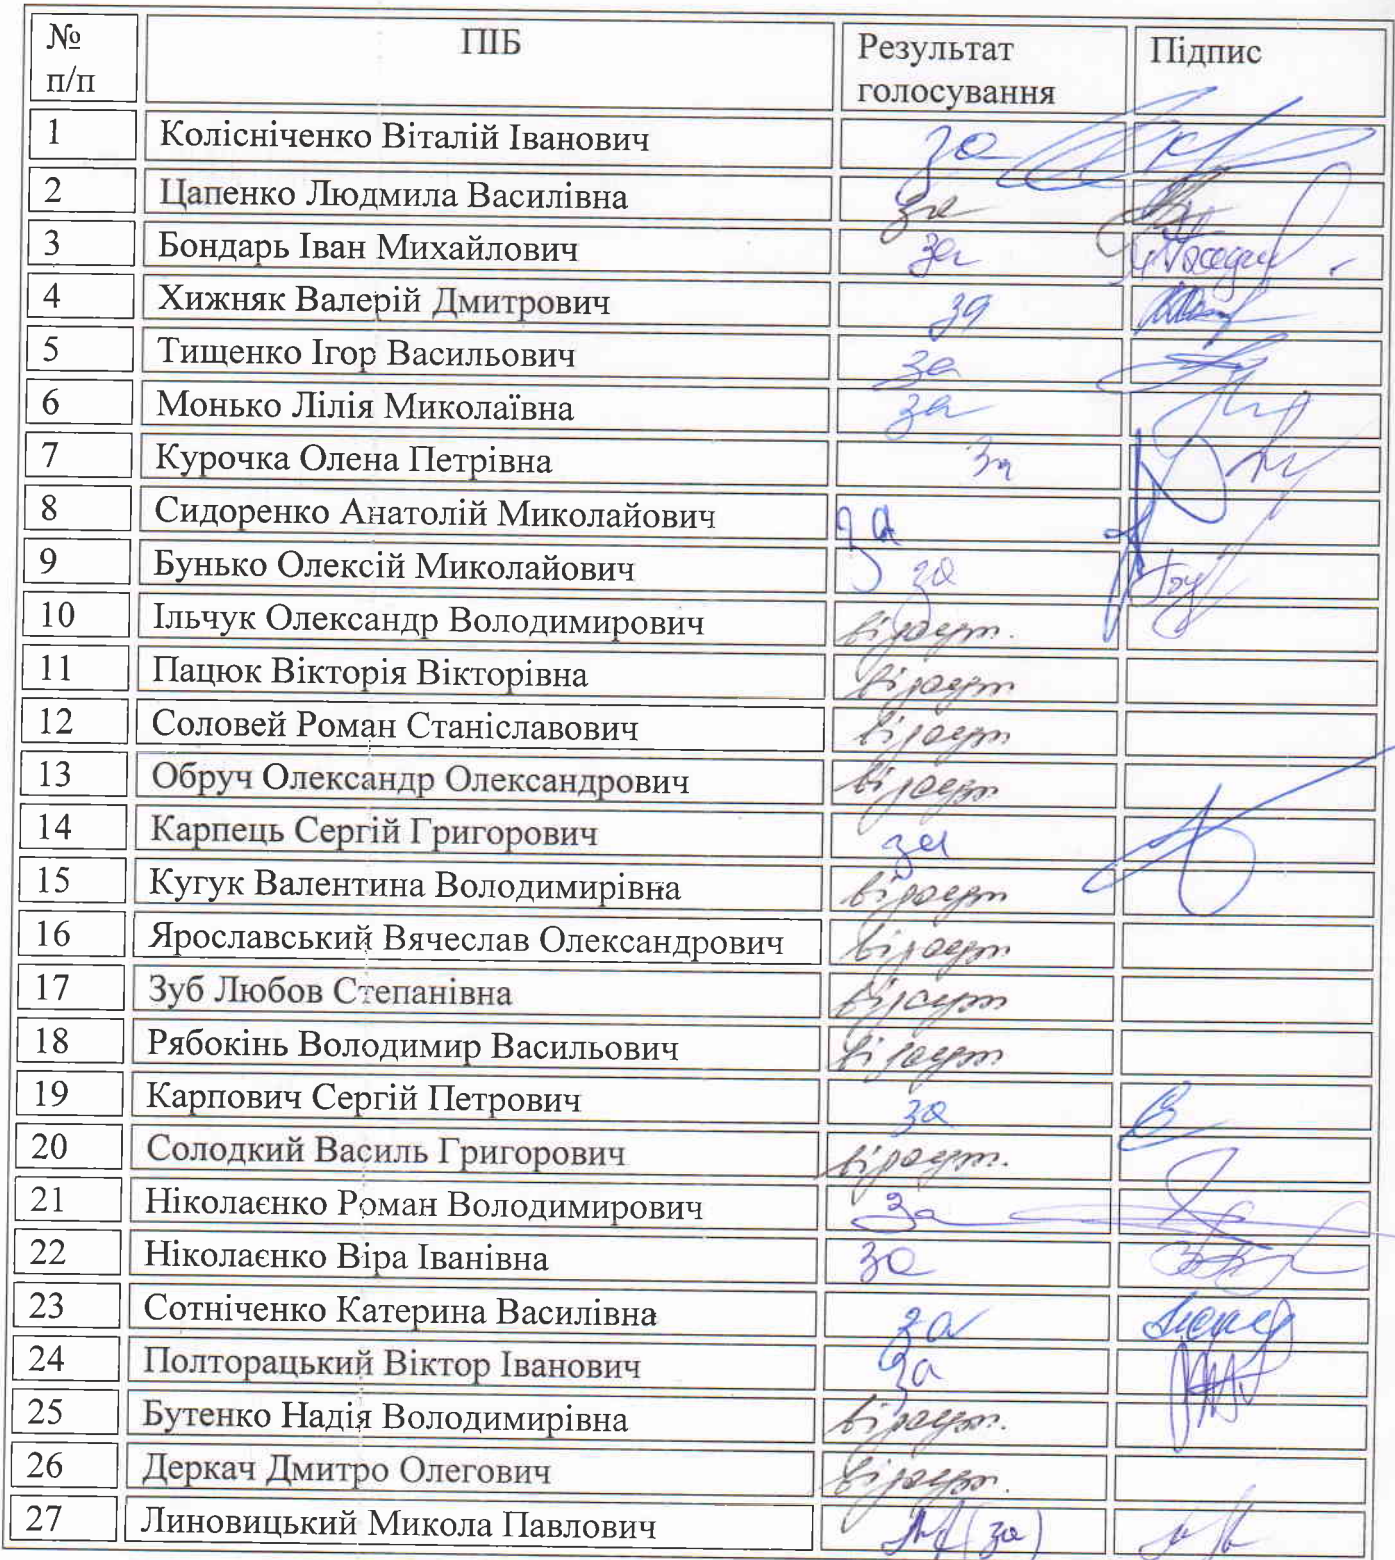 № п/п ПІБ Результат голосування Підпис
1 Колісніченко Віталій Іванович за
2 Цапенко Людмила Василівна за
3 Бондарь Іван Михайлович за
4 Хижняк Валерій Дмитрович за
5 Тищенко Ігор Васильович за
6 Монько Лілія Миколаївна за
7 Курочка Олена Петрівна за
8 Сидоренко Анатолій Миколайович за
9 Бунько Олексій Миколайович за
10 Ільчук Олександр Володимирович відсут.
11 Пацюк Вікторія Вікторівна відсут
12 Соловей Роман Станіславович відсут
13 Обруч Олександр Олександрович відсут
14 Карпець Сергій Григорович за
15 Кугук Валентина Володимирівна відсут
16 Ярославський Вячеслав Олександрович відсут
17 Зуб Любов Степанівна відсут
18 Рябокінь Володимир Васильович відсут
19 Карпович Сергій Петрович за
20 Солодкий Василь Григорович відсут.
21 Ніколаєнко Роман Володимирович за
22 Ніколаєнко Віра Іванівна за
23 Сотніченко Катерина Василівна за
24 Полторацький Віктор Іванович за
25 Бутенко Надія Володимирівна відсут.
26 Деркач Дмитро Олегович відсут.
27 Линовицький Микола Павлович (за)